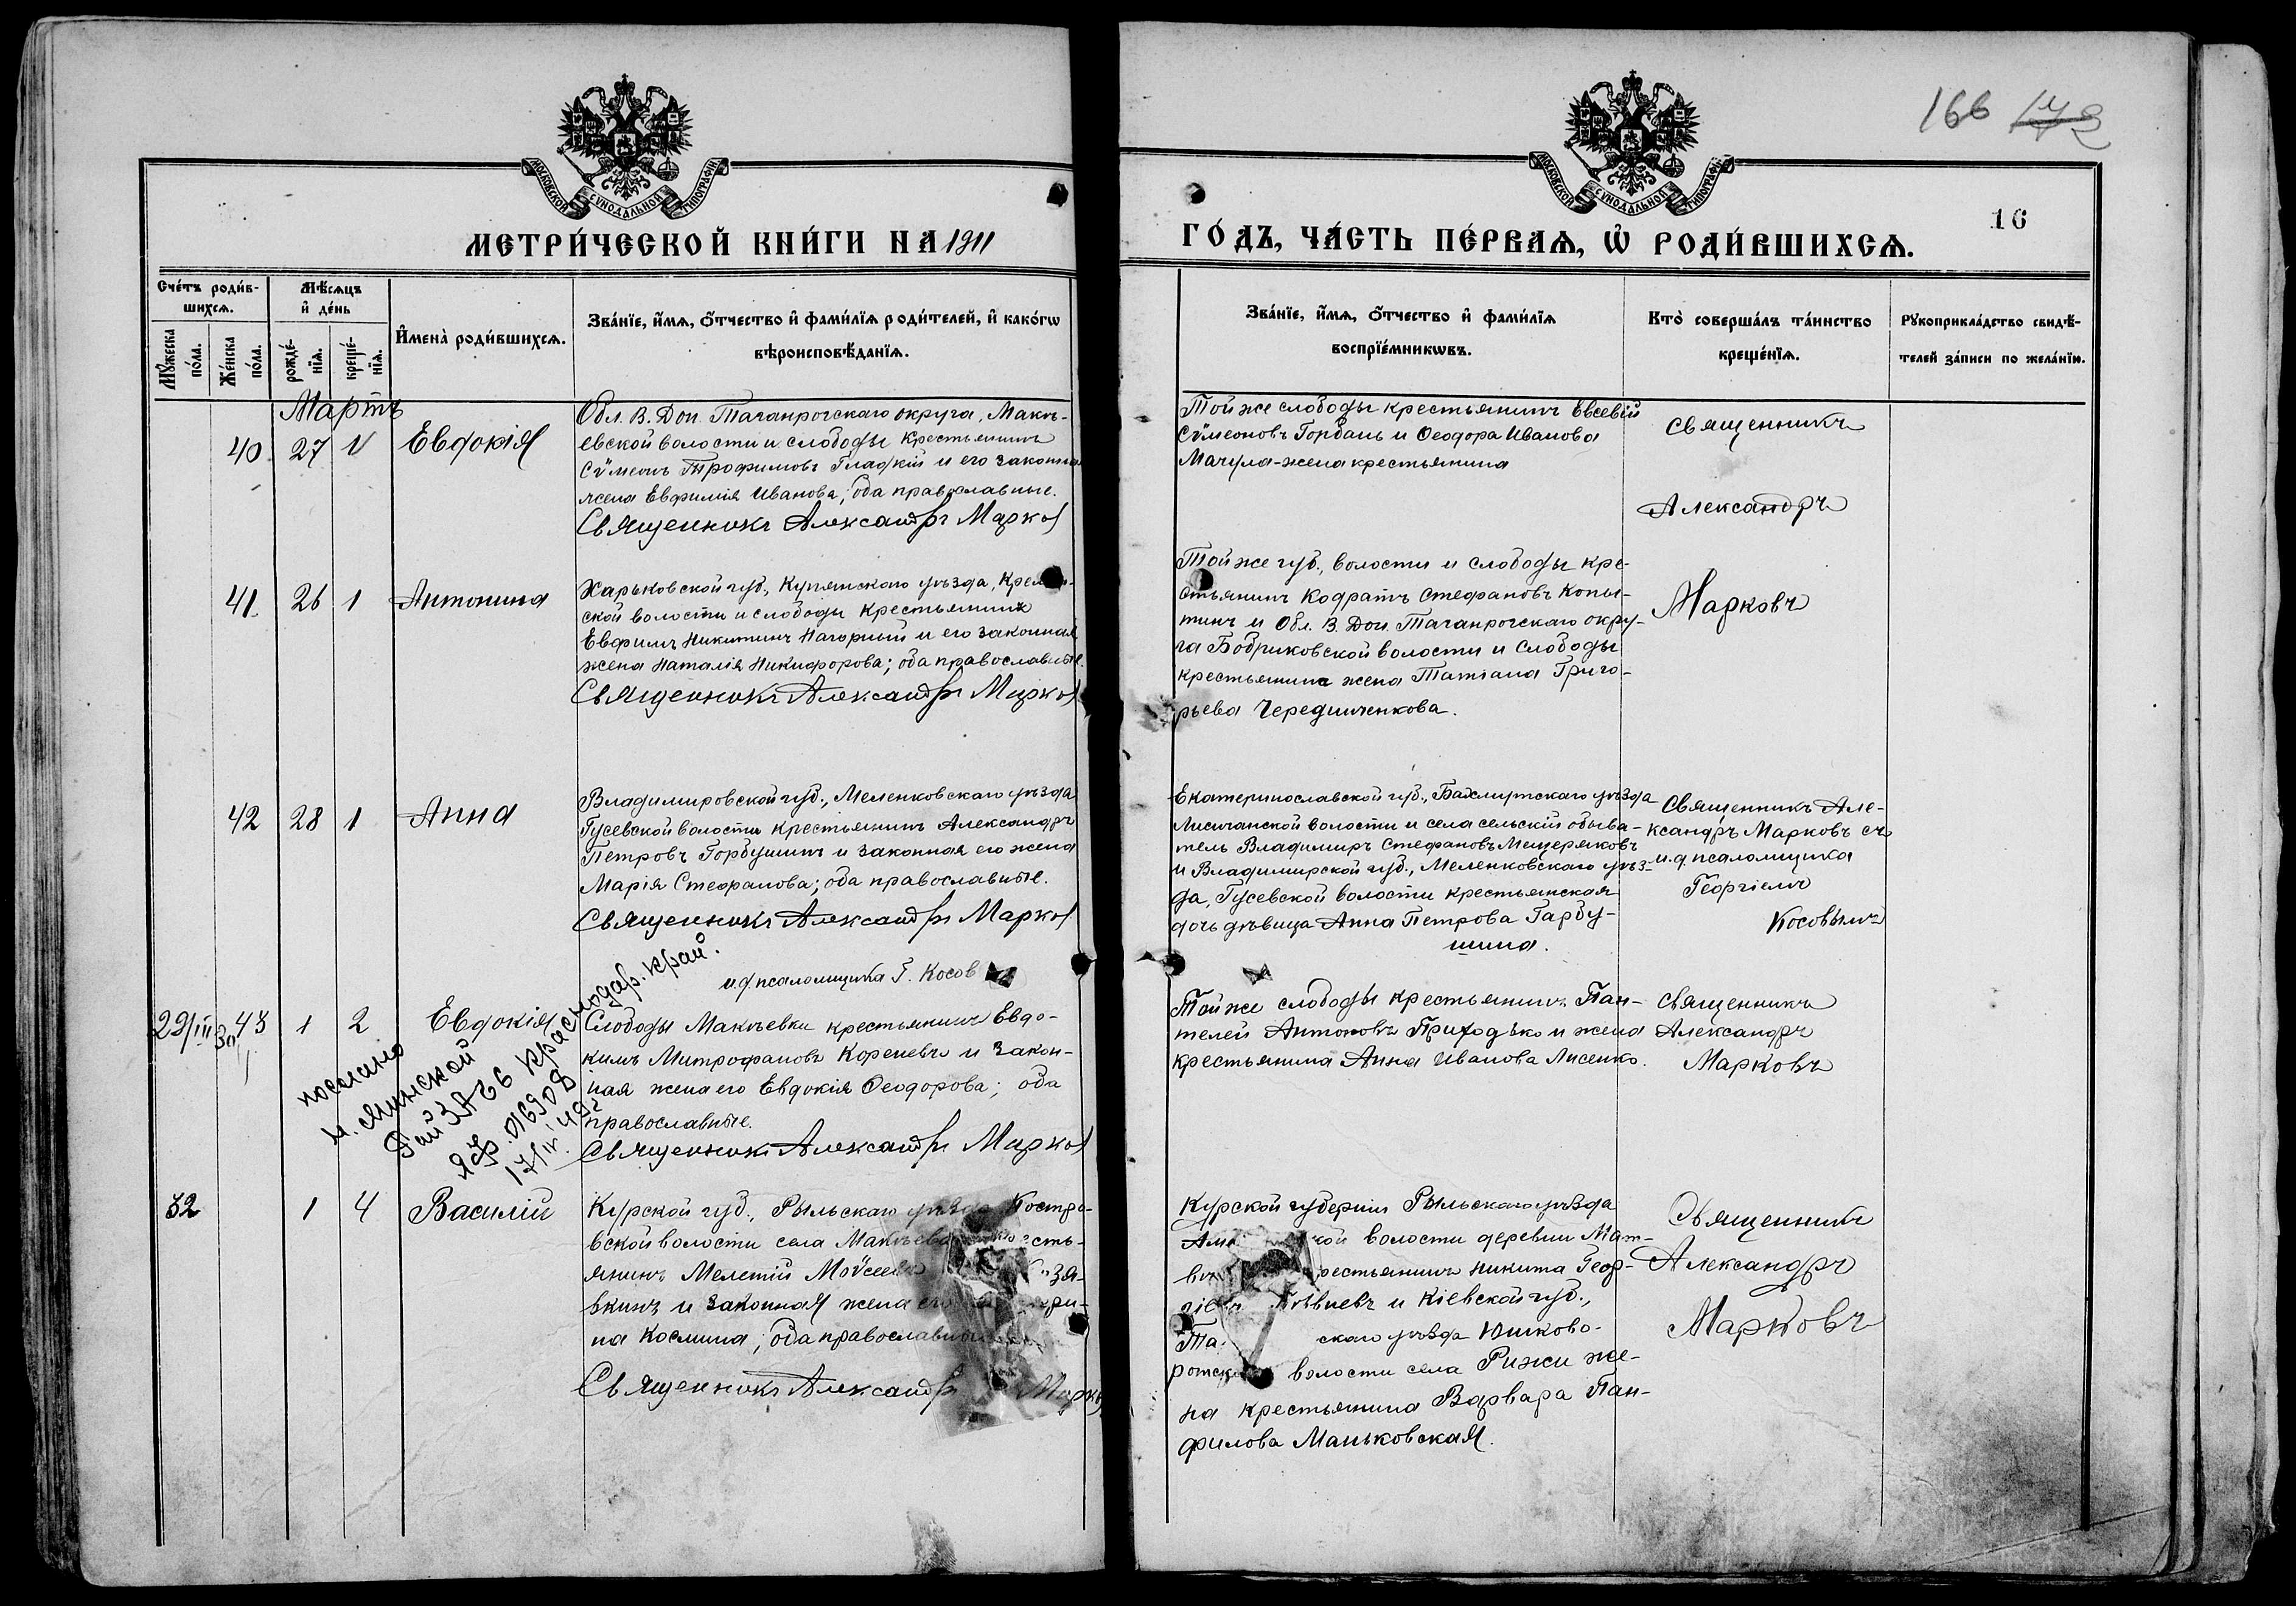 166 172
МОСКОВСКОЙ СУНОДАЛЬНОЙ ТИПОГРАФІИ
МОСКОВСКОЙ СУНОДАЛЬНОЙ ТИПОГРАФІИ
16
МЕТРИ́ЧЕСКОЙ КНИ́ГИ НА 1911
ГО́ДЪ, ЧА́СТЬ ПЕ́РВАѦ, Ѡ҆ РОДИ́ВШИХСѦ.
Сче́тъ роди́в-
шихсѧ.
Мꙋ́жеска
по́ла.
Же́нска
по́ла.
Мѣ́сѧцъ
и҆ де́нь
рожде́-
нїѧ.
креще́-
нїѧ.
И҆мена̀ роди́вшихсѧ.
Зва́нїе, и҆́мѧ, ѻ҆́тчество и҆ фами́лїѧ роди́телей, и҆ како́гѡ
вѣроисповѣ́данїѧ.
Зва́нїе, и҆́мѧ, ѻ҆́тчество и҆ фами́лїѧ
воспрїе́мникѡвъ.
Кто̀ соверша́лъ та́инство
креще́нїѧ.
Рꙋкоприкла́дство свидѣ́-
телей за́писи по жела́нїю.
Мартъ
40 27 Евдокія
Обл. В. Дон. Таганрогскаго округа, Макѣ-
евской волости и слободы крестьянинъ
Сѵмеонъ Трофимовъ Гладкій и его законна
жена Евфимія Иванова; оба православные.
Священникъ Александръ Марков
Той же слободы крестьянинъ Евсевій
Сѵмеоновъ Горбань и Ѳеодора Иванова
Мачула-жена крестьянина
Священникъ
Александръ
Марковъ
41 26 1 Антонина
Харьковской губ., Купянскаго уѣзда,
ской волости и слободы крестьянинъ
Евфимъ Никитинъ Нагорный и его законная
жена Наталія Никифорова; оба православные.
Священникъ Александръ Марков
Той же губ., волости и слободы кре-
стьянинъ Кодратъ Стефановъ Копы-
тинъ и Обл. В. Дон. Таганрогскаго окру-
га Бобриковской волости и слободы
крестьянина жена Татіана Григо-
рьева Чередниченкова.
42 28 1 Анна
Владимировской губ., Меленковскаго уѣзда
Гусевской волости крестьянинъ Александръ
Петровъ Горбушинъ и законная его жена
Марія Стефанова; оба православные.
Священникъ Александръ Марков
и.д псаломщика Г. Косов
Екатеринославской губ., Бахмутскаго уѣзда
Лисичанской волости и села сельскій обыва-
тель Владимиръ Стефановъ Мещеряковъ
и Владимирской губ., Меленковскаго уѣз-
да, Гусевской волости крестьянская
дочь дѣвица Анна Петрова Гарбу-
шина.
Священникъ Але-
ксандръ Марковъ съ
и.д псаломщика
Георгіемъ
Косовымъ
22/III 43 1 2 Евдокія
Слободы Макѣевки крестьянинъ Евдо-
кимъ Митрофановъ Кореневъ и закон-
ная жена его Евдокія Ѳеодорова; оба
православные.
Священникъ Александръ Марков
Той же слободы крестьянинъ Пан-
телей Антоновъ Приходько и жена
крестьянина Анна Иванова Лисенко.
Священникъ
Александръ
Марковъ
послано
Рай ЗАГС Краснодар. край.
32 1 4 Василій
Курской губ., Рыльскаго уѣзда
вской волости села
янинъ Мелетій Моѵсеевъ
вкинъ и законная жена его
на Космина; оба православные
Священникъ Александръ Марков
Курской губерніи Рыльскаго уѣзда
волости деревни Мат-
крестьянинъ Никита Геор-
и Кіевской губ.,
скаго уѣзда Юшково-
волости села Рижи же-
на крестьянина Варвара Пан-
филова Маньковская.
Священникъ
Александръ
Марковъ